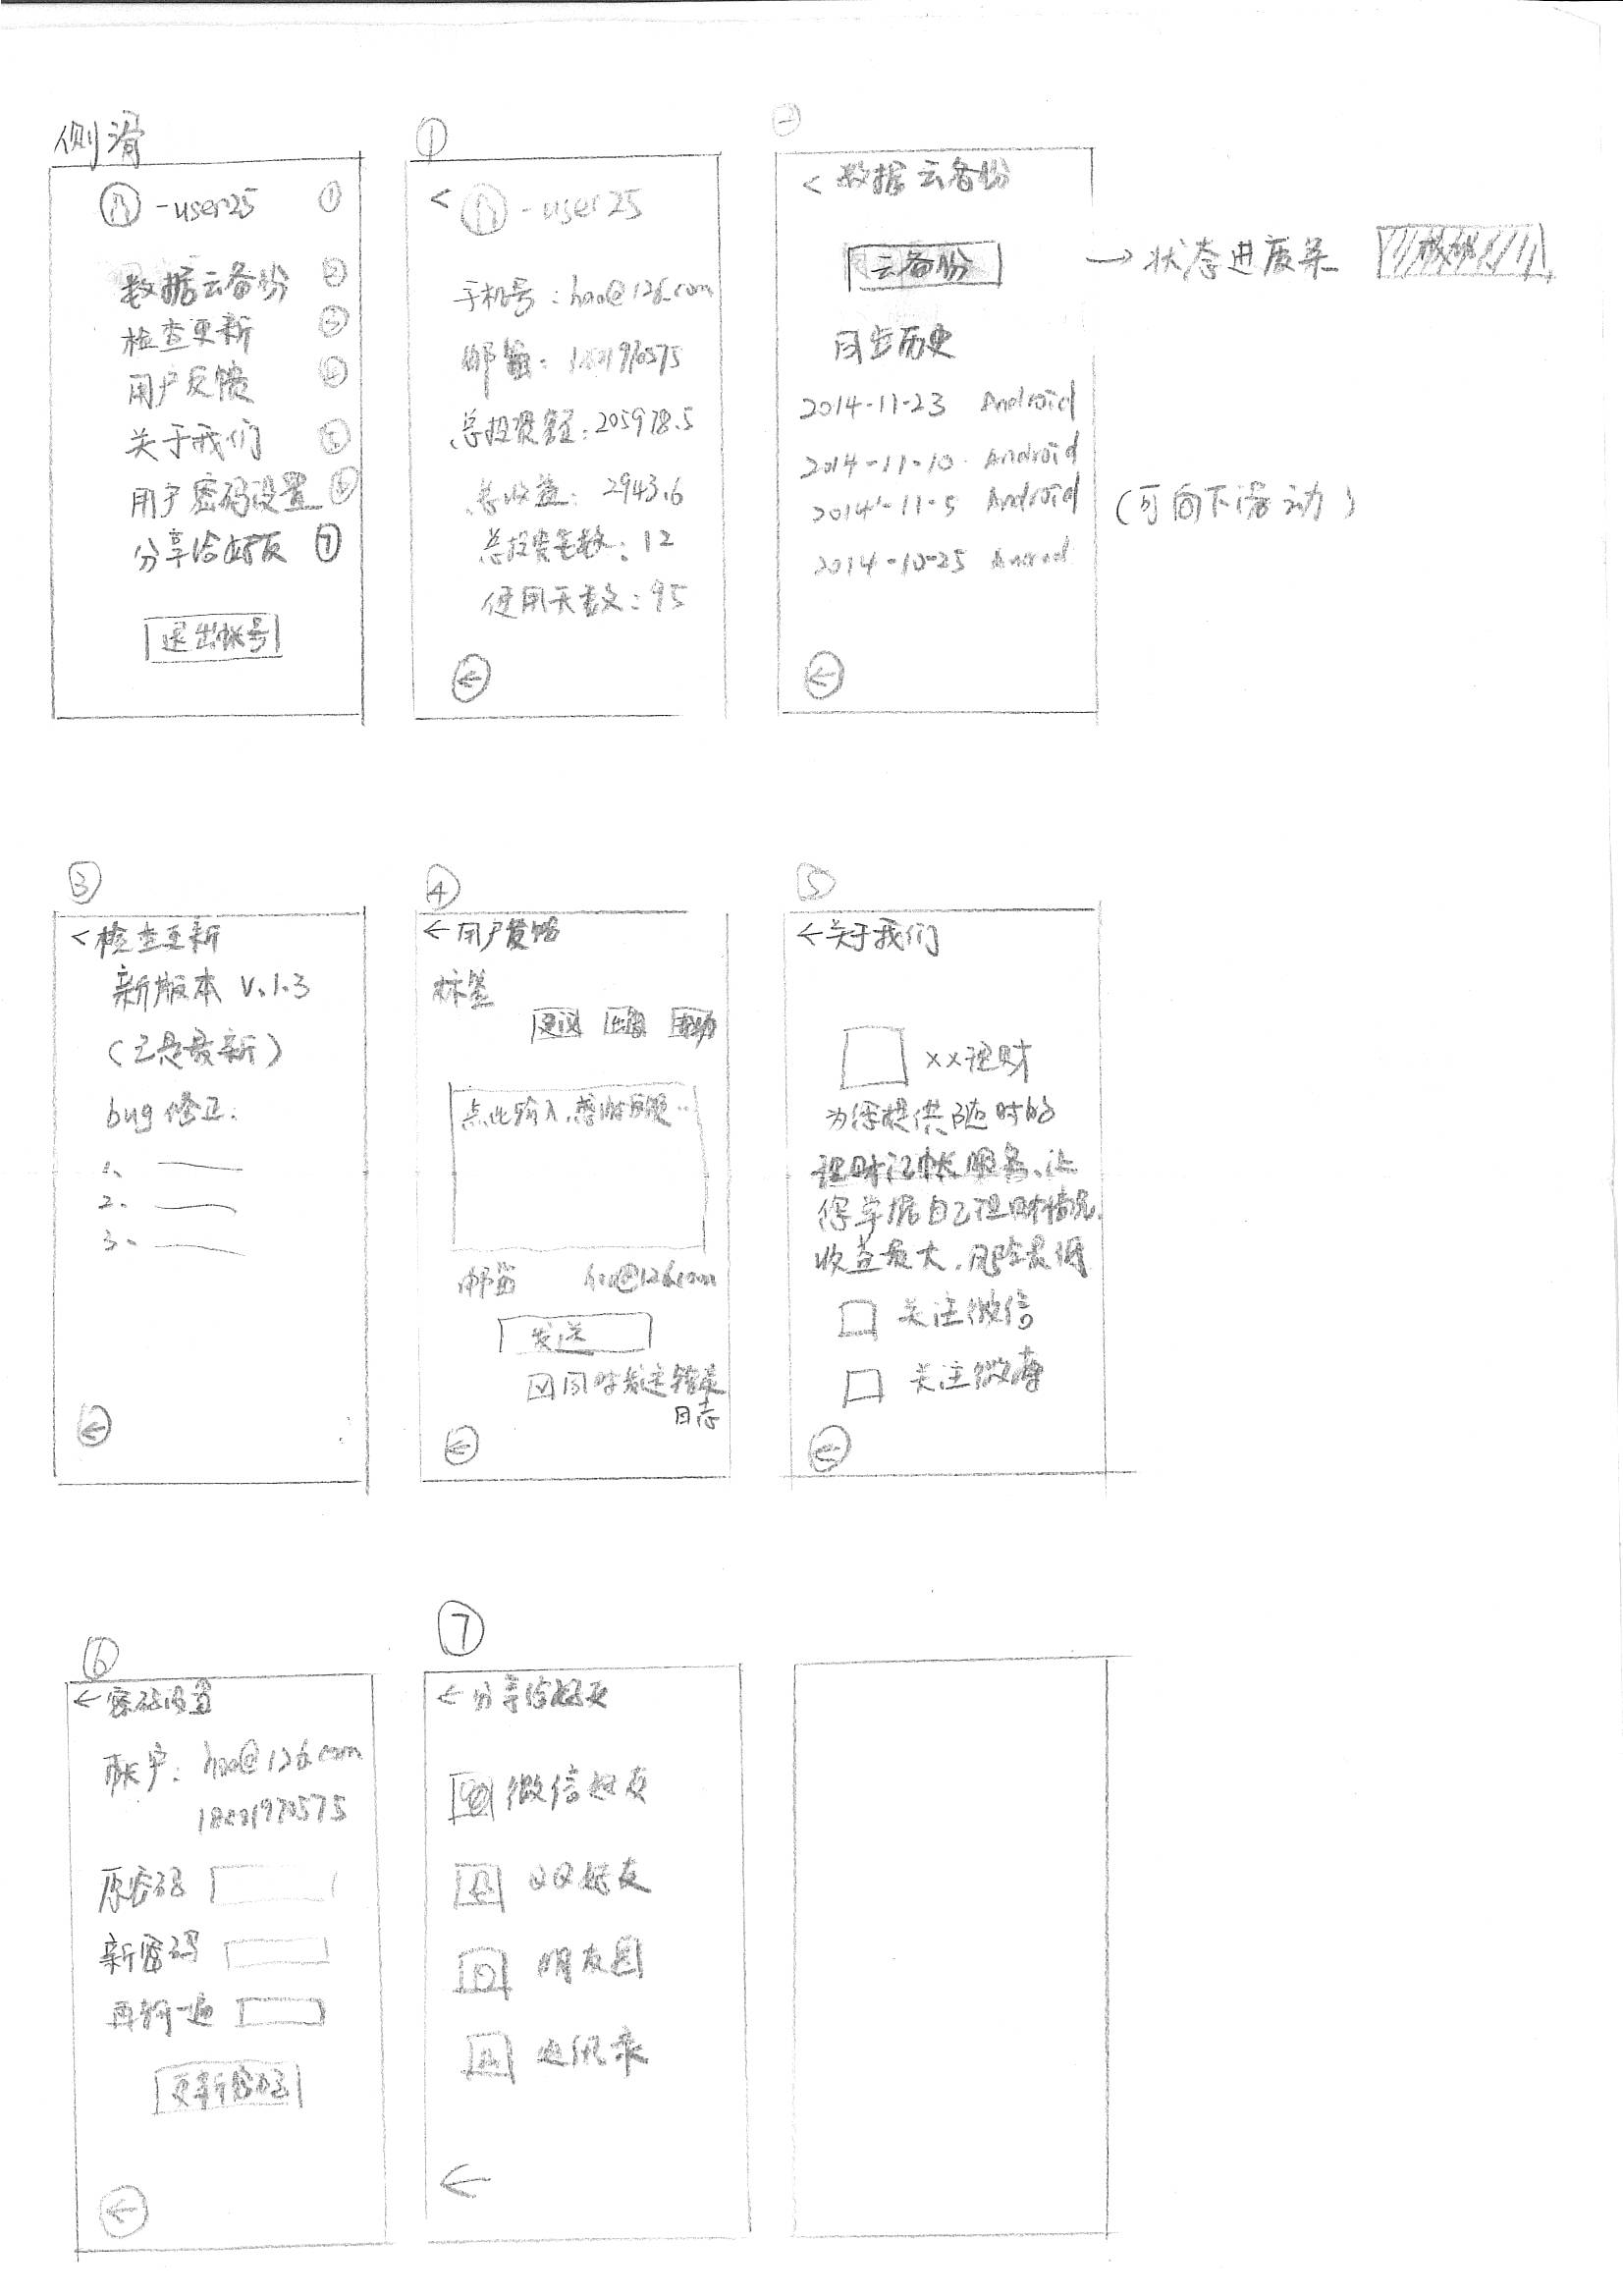 侧滑
-user25 ①
数据云备份 ②
检查更新 ③
用户反馈 ④
关于我们 ⑤
用户密码设置 ⑥
分享给好友 ⑦
退出帐号
①
< -user25
手机号：hao@126.com
邮箱：
总投资额：205978.5
总收益：2943.6
总投资笔数：12
使用天数：95
←
②
< 数据云备份
云备份
→ 状态进度条
同步历史
2014-11-23 Android
2014-11-10 Android
2014-11-5 Android
(可向下滑动)
2014-10-25
←
③
< 检查更新
新版本 V.1.3
(已是最新)
bug修正：
1、
2、
3、
←
④
← 用户反馈
标签
建议 帮助
点此输入，感谢反馈…
邮箱 hao@126.com
发送
同时发送错误
日志
←
⑤
← 关于我们
××理财
为您提供随时的
理财记帐服务、让
您掌握自己理财情况.
收益最大.风险最低
关注微信
关注微博
←
⑥
← 密码设置
帐户：hao@126.com
原密码
新密码
再输一遍
更新密码
←
⑦
← 分享给好友
微信好友
QQ好友
朋友圈
通讯录
←